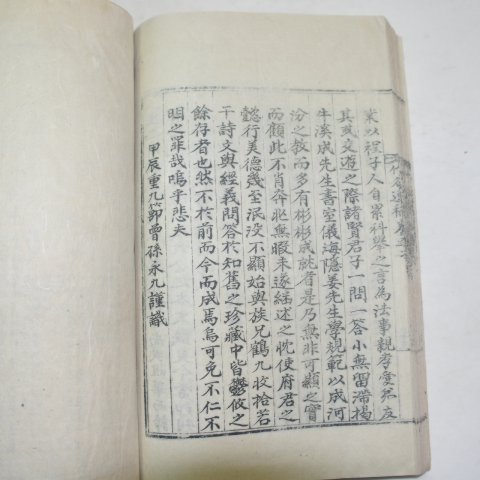 業以程子人自累科擧之言為法事親孝愛弟友
其或交遊之際諸賢君子一問一答小無留滯揭
牛溪成先生書室儀海隱姜先生學規範以成河
汾之敎而多有彬彬成就者是乃無非可顯之實
而顧此不肖奔北無暇未遂經述之忱使府君之
懿行美德幾至泯沒不顯始與族兄鶴九收拾若
干詩文與經義問答於知舊之珍藏中皆鬱攸之
餘存者也然不於前而今而成焉烏可免不仁不
明之罪哉嗚乎悲夫
甲辰重九節曾孫永九謹識